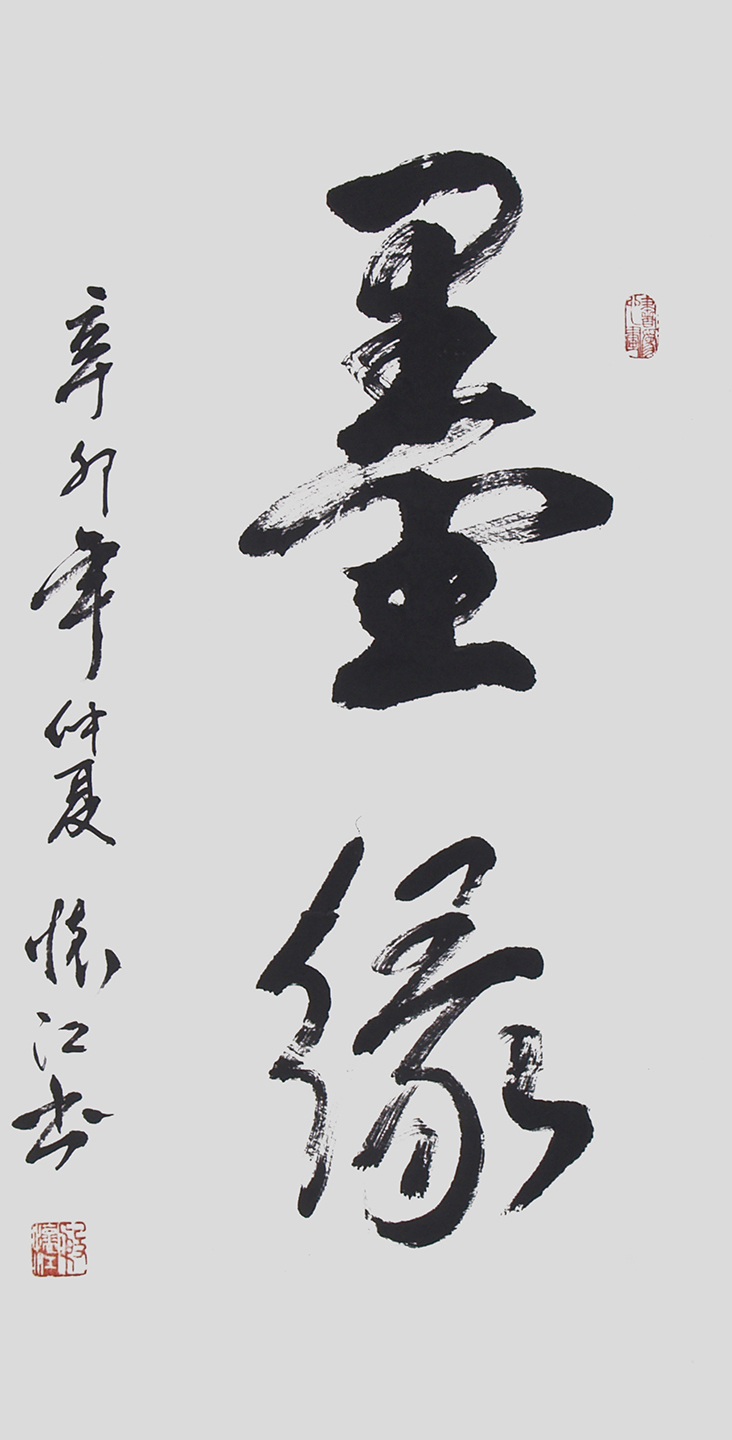 墨缘
辛卯年仲夏 怀江书